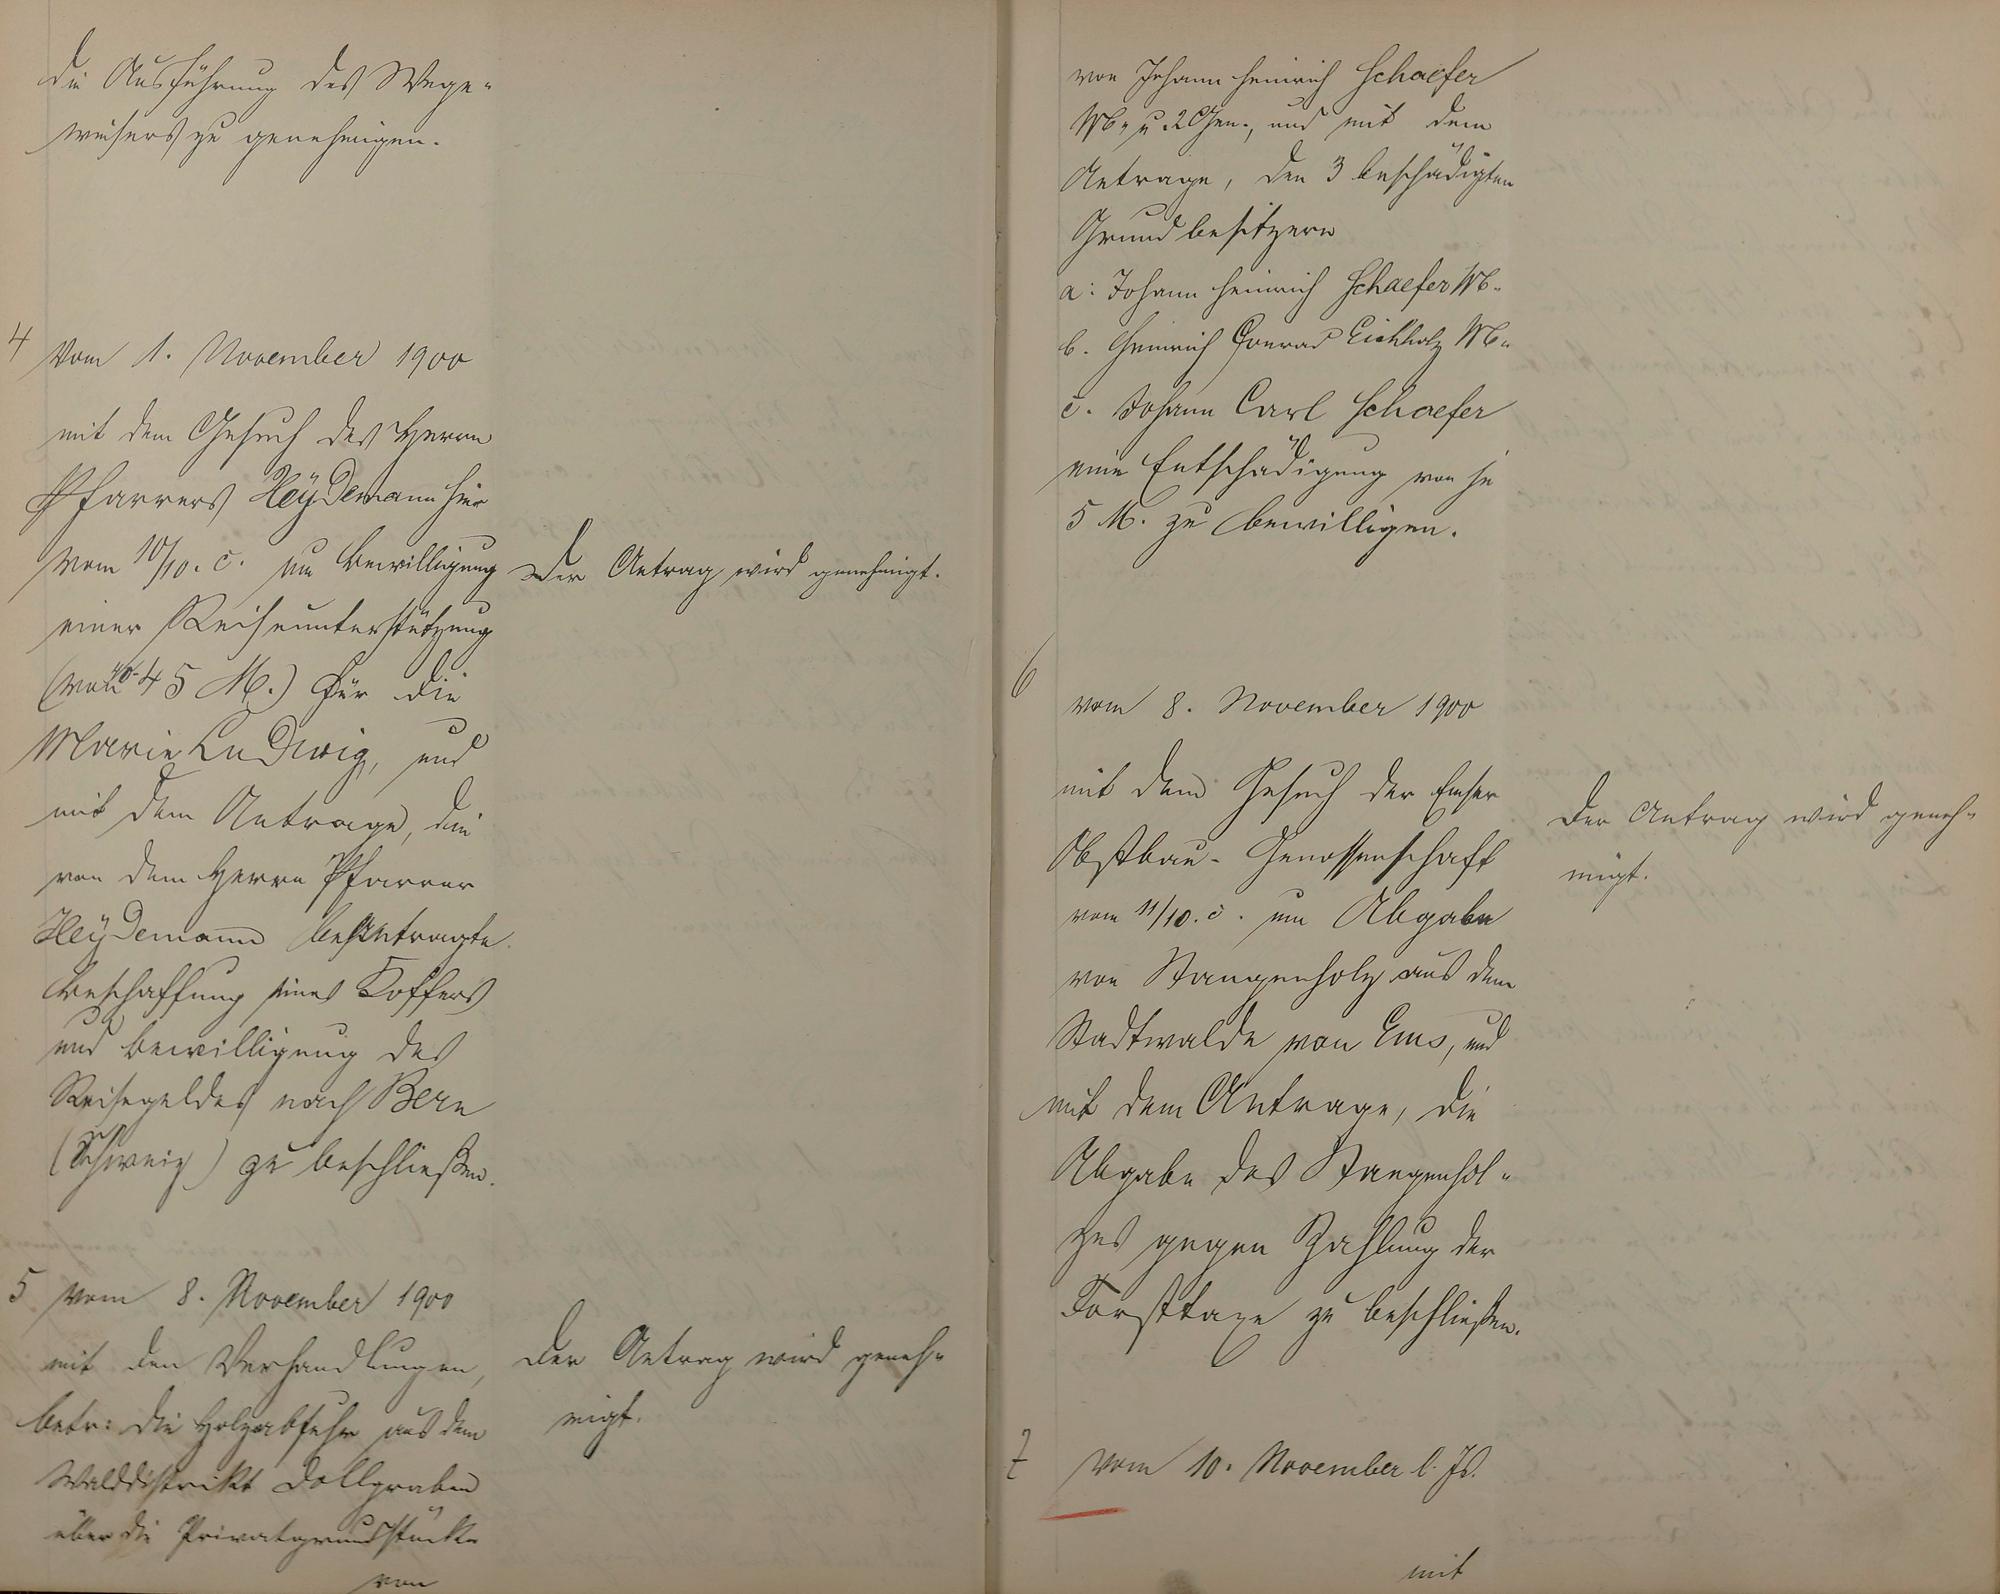 die Ausführung des Wege-
weisers zu genehmigen.
4
Vom 1. November 1900
mit dem Gesuch des Herrn
Pfarrers Heydemann hier
vom 10/10. c. um Bewilligung
einer Reiseunterstützung
(von 40-45 M.) für die
Marie Ludwig, und
mit dem Antrage, die
von dem Herrn Pfarrer
Heydemann beantragte
Beschaffung eines Koffers
und Bewilligung des
Reisegeldes nach Bern
(Schweiz) zu beschließen.
Der Antrag wird genehmigt.
5 vom 8. November 1900
mit den Verhandlungen,
betr: die Holzabfuhr aus dem
Walddistrikt Dollgraben
über die Privatgrundstücke
von
Der Antrag wird geneh-
migt.
von Johann Heinrich Schaefer
Wb. u. 2 Gen., und mit dem
Antrage, den 3 beschädigten
Grundbesitzern
a: Johann Heinrich Schaefer Wb.
b. Heinrich Conrad Eichholz Wb.
c. Johann Carl Schaefer
eine Entschädigung von je
5 M. zu bewilligen.
6
vom 8. November 1900
mit dem Gesuch der Emser
Obstbau-Genossenschaft
vom 11/10. c. um Abgabe
von Stangenholz aus dem
Stadtwalde von Ems, und
mit dem Antrage, die
Abgabe des Stangenhol-
zes gegen Zahlung der
Forsttaxe zu beschließen.
Der Antrag wird geneh-
migt.
7
vom 10. November l. Js.
mit